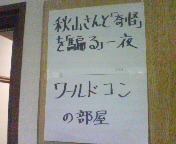 秋山さんと「奇怪」
を「騙る」一夜
ワールドコン
の部屋